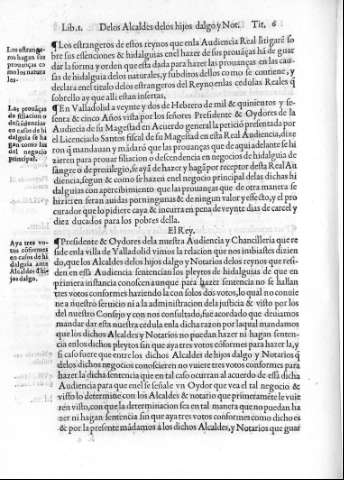 Lib. 1. Delos Alcaldes delos hijos dalgo y Not. Tit. 6
Los estrangeros
hagan sus
prouanças como
los naturales.
¶Los estrangeros de estos reynos que enla Audiencia Real litigarē sobre
sus essenciones & hidalguias enel hazer de sus prouãças há de guardar
la forma y orden que esta dada para hazer las prouanças en las causas
de hidalguia delos naturales, y subditos dellos como se contiene, y
declara enel titulo delos estrangeros del Reyno en las cedulas Reales q̃
sobrello ay que alli estan insertas.
Las prouãças
de filiacion o
descendencias
en caso de hidalguia
se hagan
como las
del negocio
principal.
¶En Valladolid a veynte y dos de Hebrero de mil & quinientos y sesenta
& cinco Años vista por los señores Presidente & Oydores de la
Audiecia de su Magestad en Acuerdo general la petició presentada por
el Licenciado Santos fiscal de su Magestad en esta Real Audiencia, dixeron
q̃ mandauan y mãdarõ que las prouanças que de aqui adelante se hizieren
para prouar filiacion o descendencia en negocios de hidalguia de
sangre o de preuilegio, se aya de hazer y hagã por receptor desta Real Audiencia,
segun & como se hazen enel negocio principal delas dichas hidalguias
con apercibimiento que las prouanças que de otra manera se
hiziere seran auidas por ningunas & de ningun valor y efecto, y el procurador
que lo pidiere caya & incurra en pena de veynte dias de carcel y
diez ducados para los pobres della.
El Rey.
Aya tres votos
cõformes
en caso de hidalguia
ante
Alcaldes d̃ hijos
dalgo.
¶Presidente & Oydores dela nuestra Audiencia y Chancilleria que reside
enla villa de Valladolid vimos la relacion que nos imbiastes diziendo,
que los Alcaldes delos hijos dalgo y Notarios delos reynos que residen
en essa Audiencia sentencian los pleytos de hidalguias de que en
primera instancia conoscen aunque para hazer sentencia no se hallan
tres votos conformes haziendo la con solos dos votos, lo qual no conuiene
a nuestro seruicio ni a la administracion dela justicia & visto por los
del nuestro Consejo y con nos consultado, fue acordado que deuiamos
mandar dar esta nuestra cedula enla dicha razon por la qual mandamos
que los dichos Alcaldes y Notarios no puedan hazer ni hagan sentencia
enlos dichos pleytos sin que aya tres votos conformes para hazer la, y
si caso fuere que entre los dichos Alcaldes de hijos dalgo y Notarios q̃
delos dichos negocios conoscieren no vuiere tres votos conformes para
hazer la dicha sentencia que en tal caso ocurran al acuerdo de essa dicha
Audiencia para que enel se señale vn Oydor que vea el tal negocio &
visto lo determine con los Alcaldes & notario que primeramẽte le vuieren
visto, con que la determinacion sea en tal manera que no puedan hazer
ni hagan sentencia sin que ayan tres votos conformes como dicho es
& por la presente mãdamos a los dichos Alcaldes, y Notarios que guar